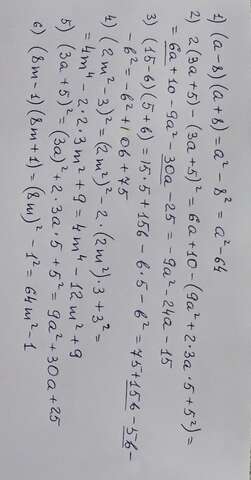 1) (a-8)(a+8) = a² - 8² = a² - 64
2) 2(3a+5) - (3a+5)² = 6a + 10 - (9a² + 2·3a·5 + 5²) =
= 6a + 10 - 9a² - 30a - 25 = -9a² - 24a - 15
3) (15-b)(5+b) = 15·5 + 15b - b·5 - b² = 75 + 15b - 5b -
- b² = -b² + 10b + 75
4) (2m² - 3)² = (2m²)² - 2·(2m²)·3 + 3² =
= 4m⁴ - 2·2·3m² + 9 = 4m⁴ - 12m² + 9
5) (3a+5)² = (3a)² + 2·3a·5 + 5² = 9a² + 30a + 25
6) (8m-1)(8m+1) = (8m)² - 1² = 64m² - 1